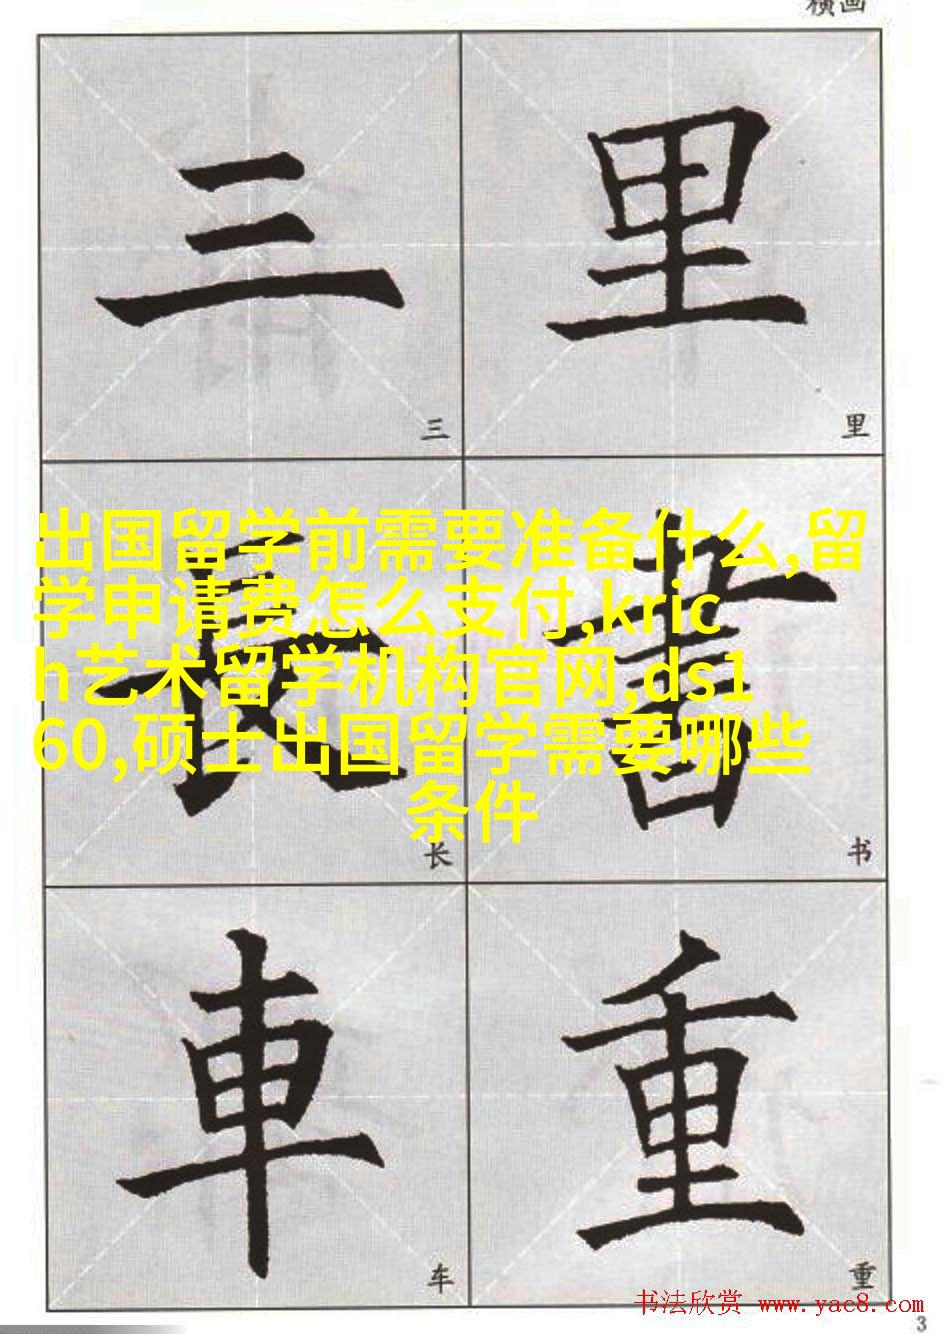 横画
三 里
三 里
出国留学前需要准备什么,留
学申请费怎么支付,kric
h艺术留学机构官网,ds1
60,硕士出国留学需要哪些
条件
長 書
长 书
車 重
车 重
书法欣赏 www.yac8.com
3